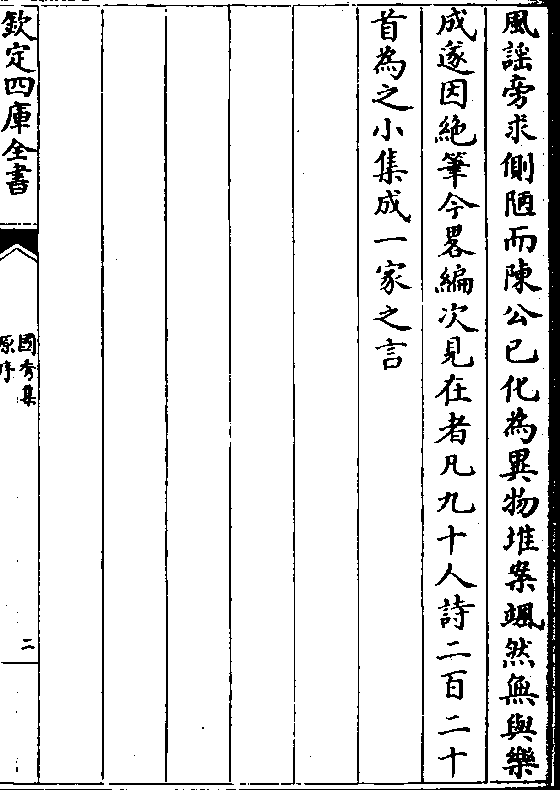 風謡旁求側陋而陳公已化為異物堆案颯然無與樂
成遂因絶筆今畧編次見在者凡九十人詩二百二十
首為之小集成一家之言
欽定四庫全書
國秀集
原序
二